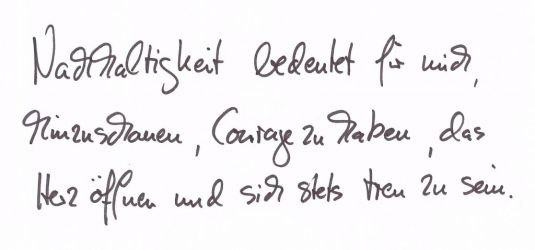 Nachhaltigkeit bedeutet für mich,
hinzuschauen, Courage zu haben, das
Herz öffnen und sich stets treu zu sein.